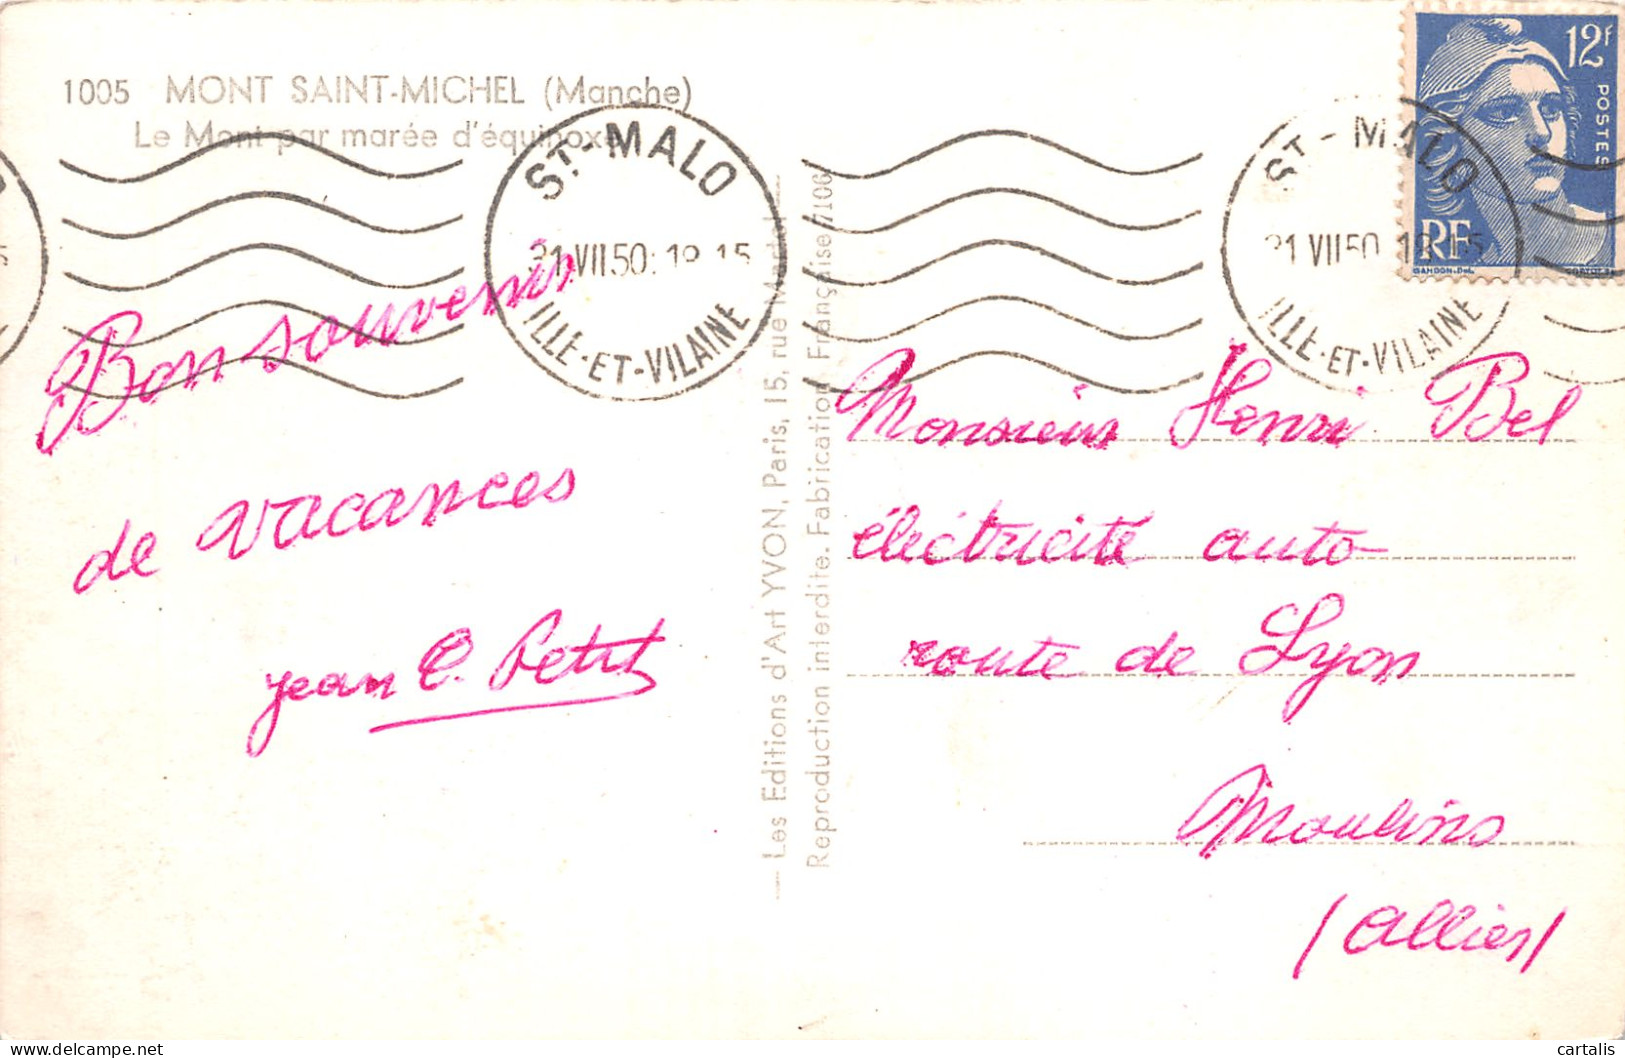 1005 MONT SAINT-MICHEL (Manche)
Le Mont par marée d'équinoxe
ST-MALO
31 VII 50 18 15
ILLE-ET-VILAINE
ST-MALO
31 VII 50 18 15
ILLE-ET-VILAINE
12F
POSTES
RF
GANDON.Del.
Bon souvenir
de vacances
jean C. Petit
Les Editions d'Art YVON, Paris, 15, rue Martel
Reproduction interdite. Fabrication Française 7106
Monsieur Henri Bel
électricité auto
route de Lyon
Moulins
/Allier/
cartalis